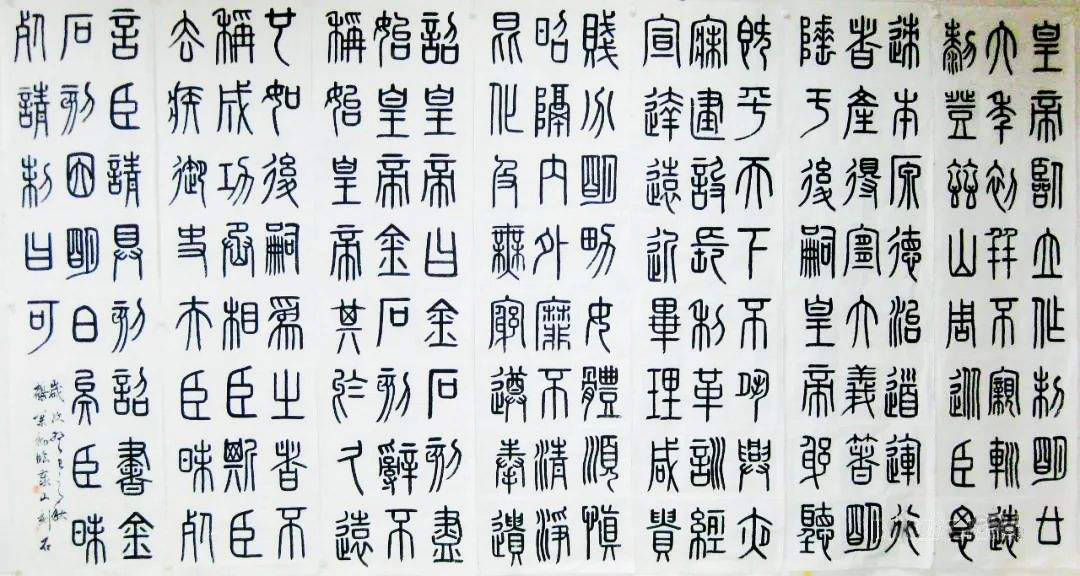 皇帝臨立作制明廿
六年初并不親軔遠
黎登茲山周巡臣思
迹本原德治道運行
者產得宜大義箸明
陲于後嗣皇帝躬聽
既平天下不懈興夜
寐建設長利革訓經
宣達遠近畢理咸貴
賤分明男女體順慎
昭隔內外靡不清淨
昆化及無窮遵奉遺
詔皇帝曰金石刻盡
始皇帝金石刻辭不
稱始皇帝其於久遠
也如後嗣為之者不
稱成功盛相臣斯臣
去疾御史夫臣昧死
言臣請具刻詔書金
石刻因明白矣臣昧
死請制曰可
歲次之秋
臨泰山刻石